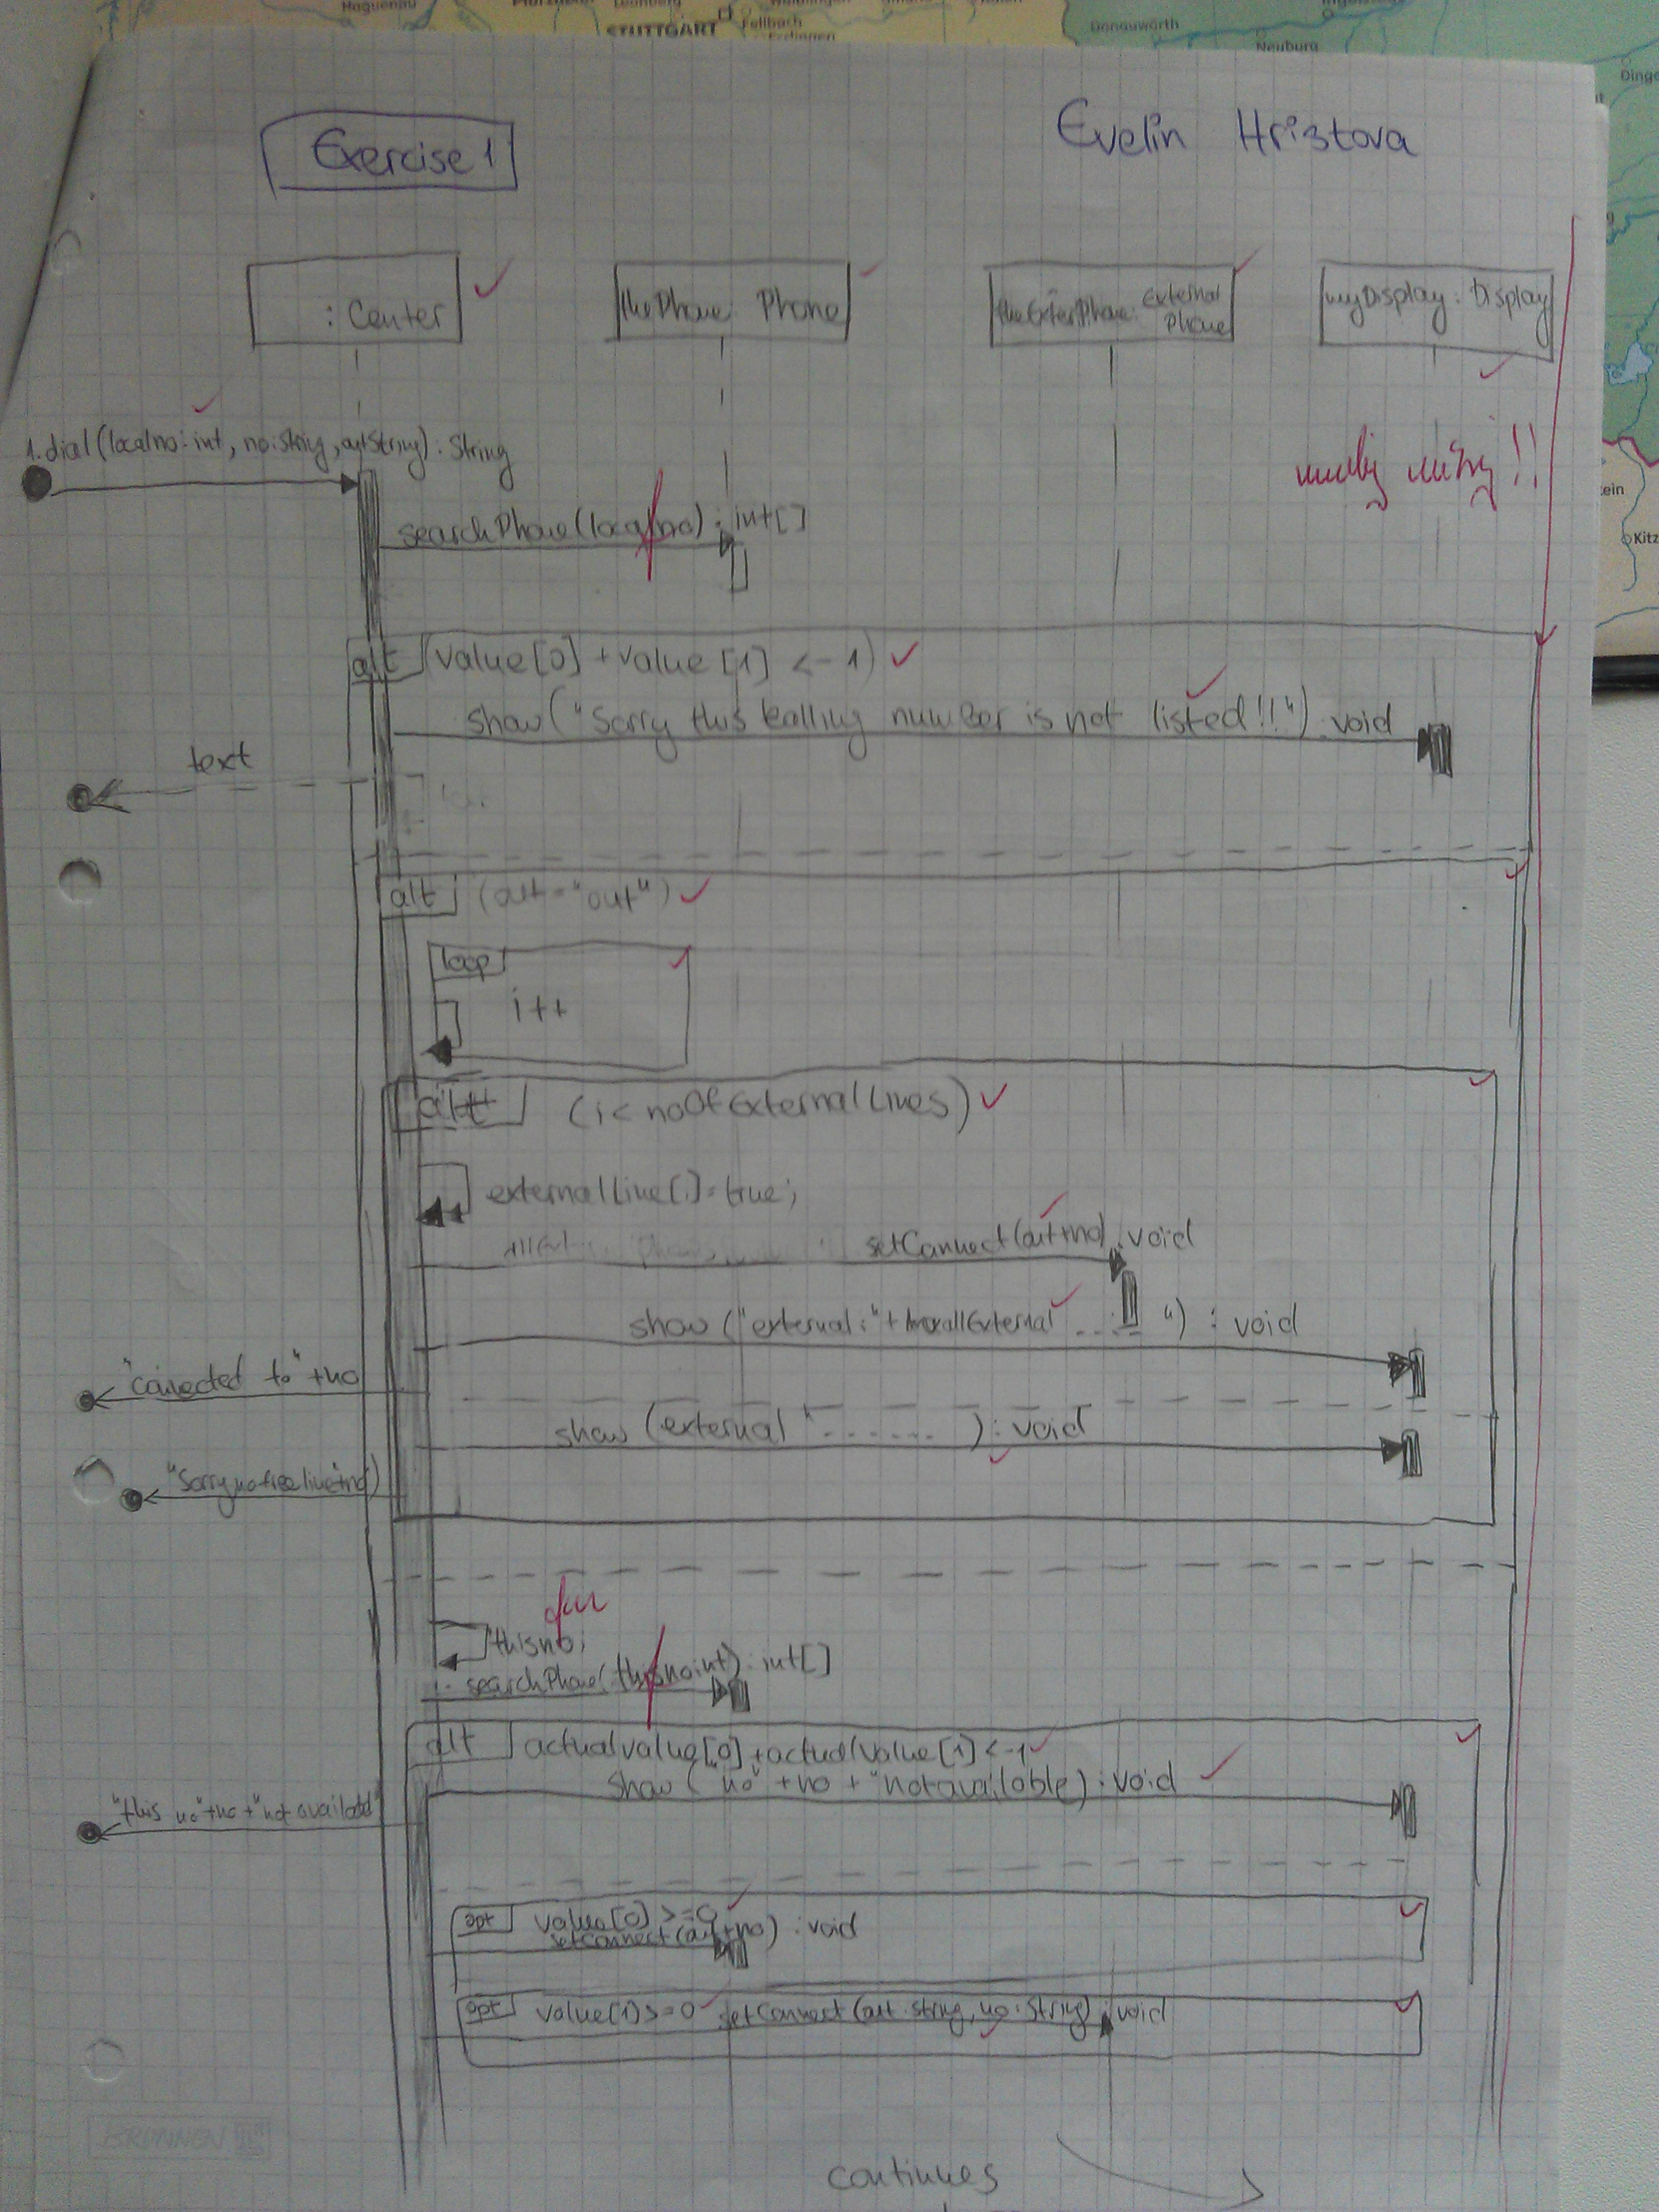 STUTTGART
Fellbach
Donauwörth
Neuburg
Kitz
Exercise 1
Evelin Hristova
: Center
thePhone: Phone
theExterPhone: External Phone
myDisplay: Display
1.dial(localno: int, no:String, art:String): String
searchPhone(localno): int[]
alt (value[0] + value [1] <-1)
show("Sorry this kalling number is not listed!!"): void
text
alt (art="out")
loop
i++
alt (i< noOfExternalLines)
externalLine[i]=true;
setConnect(art+no): void
show ("external:"+ ..... "): void
"connected to" +no
show (external "....... ): void
"Sorry no free line"+no)
thisno;
searchPhone(thisnoint): int[]
alt actualvalue[0]+actualValue[1]<-1
show ("no"+no+"notavailable): void
"this no"+no+"not available"
opt value[0]>=0
setConnect(art+no): void
opt value(1)>=0 setConnect(art:string, no:String): void
continues
BRUNNEN